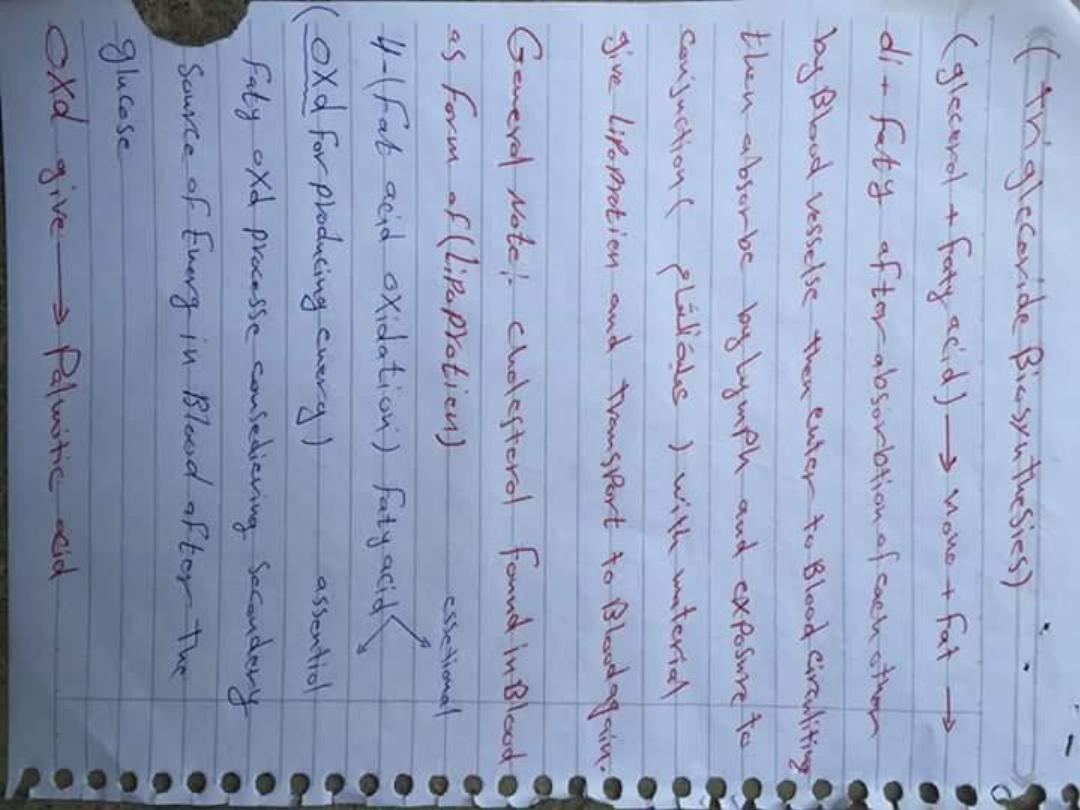 ( triglecoride Biosynthesies)
(glecerol + fatyacid) → mono + fat →
di + faty after absorbtion of each other
by Blood vesselse then enter to Blood circuliting
then absorbe by lymph and exposure to
conjuction ( ) with material
give lipoprotien and transport to Blood again.
General Note: cholesterol found in Blood
as form of (lipoprotien) essetional
4-(fat acid oxidation) fatyacid
(OXd for producing energy) assential
faty oxd processe consediering secondery
Source of Energ in Blood after the
glucose
OXd give → Palmitic acid